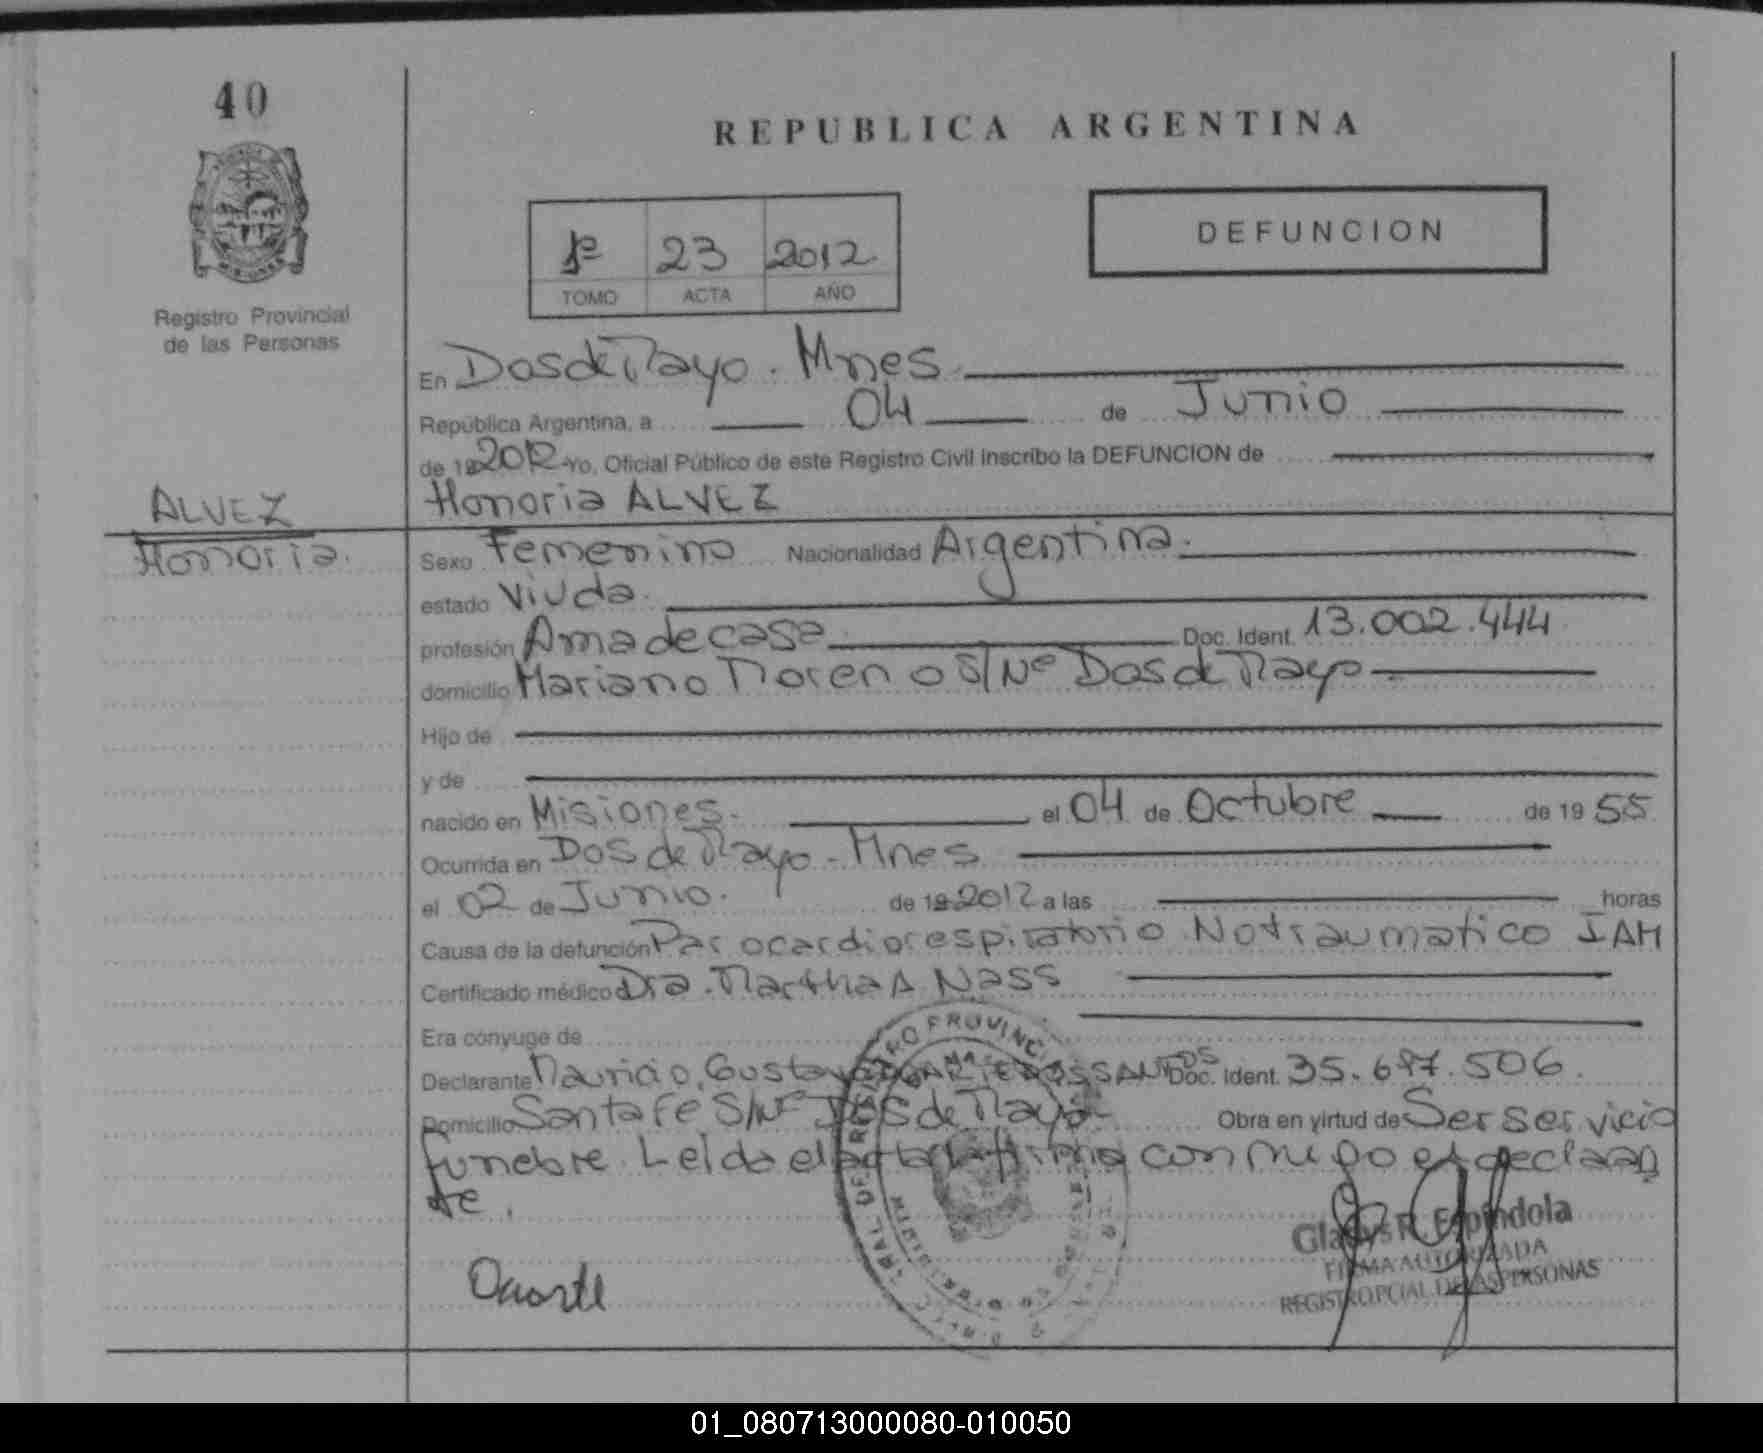 40
REPUBLICA ARGENTINA
1º 23 2012
TOMO ACTA AÑO
DEFUNCION
Registro Provincial
de las Personas
En Dos de Mayo. Mnes
República Argentina, a 04 de Junio
de 19 2012 Yo, Oficial Público de este Registro Civil inscribo la DEFUNCION de
ALVEZ
Honoria.
Honoria ALVEZ
Sexo Femenino Nacionalidad Argentina.
estado Viuda.
profesión Ama de casa Doc. Ident. 13.002.444
domicilio Mariano Moreno S/Nº Dos de Mayo
Hijo de
y de
nacido en Misiones. el 04 de Octubre de 19 55
Ocurrida en Dos de Mayo - Mnes
el 02 de Junio. de 19 2012 a las horas
Causa de la defunción Paro cardiorespiratorio No traumatico IAM
Certificado médico Dra. Martha A Nass
Era cónyuge de
Declarante Mauricio, Gustavo DOS SANTOS Doc. Ident. 35.697.506.
Domicilio Santa Fe S/Nº Dos de Mayo Obra en virtud de Ser servicio
funebre. Leida el acta la firma con migo el declaran
te.
Gladys R. Espindola
FIRMA AUTORIZADA
REGISTRO PCIAL DE LAS PERSONAS
01_080713000080-010050